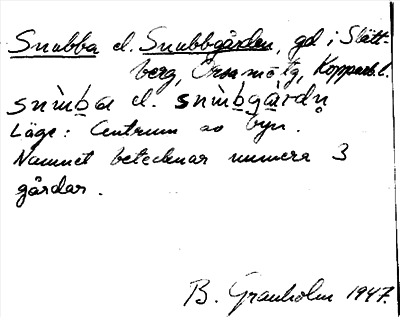 Snubba el. Snubbgården, gd i Slätt-
berg, Orsa sn, Kopparb. l.
snùb̲a el. snùb̲gà̲rdn̥
Läge: Centrum av byn.
Namnet betecknar numera 3
gårdar.
B. Granholm 1947.